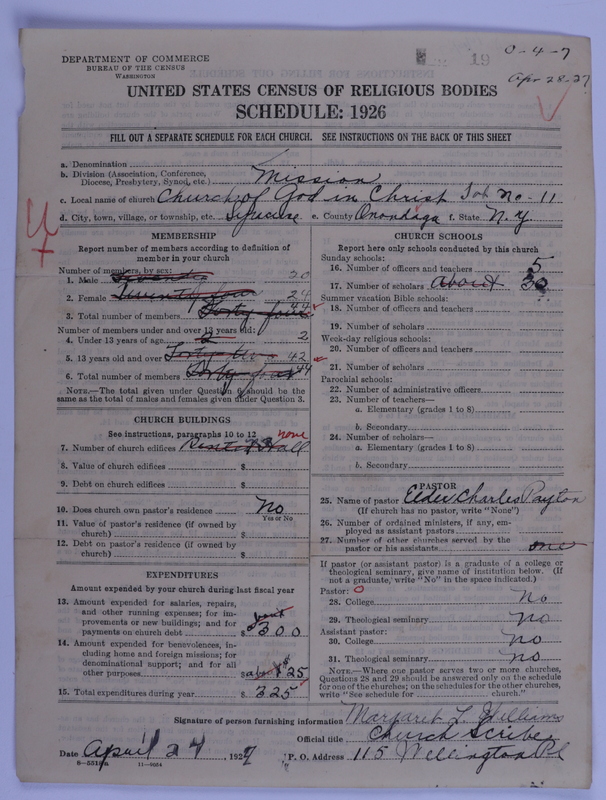 19
0-4-7
Apr 28-27
DEPARTMENT OF COMMERCE
BUREAU OF THE CENSUS
WASHINGTON
UNITED STATES CENSUS OF RELIGIOUS BODIES
SCHEDULE: 1926
FILL OUT A SEPARATE SCHEDULE FOR EACH CHURCH. SEE INSTRUCTIONS ON THE BACK OF THIS SHEET
a. Denomination
b. Division (Association, Conference, Diocese, Presbytery, Synod, etc.) Mission
c. Local name of church Church of God in Christ No-11
d. City, town, village, or township, etc. Syracuse e. County Onondaga f. State N.Y
MEMBERSHIP
Report number of members according to definition of member in your church
Number of members, by sex:
1. Male Twenty 20
2. Female Twenty four 24
3. Total number of members Forty four 44
Number of members under and over 13 years old:
4. Under 13 years of age 2 2
5. 13 years old and over Forty two 42
6. Total number of members Forty four 44
NOTE.—The total given under Question 6 should be the same as the total of males and females given under Question 3.
CHURCH BUILDINGS
See instructions, paragraphs 10 to 12
7. Number of church edifices Rented Hall none
8. Value of church edifices $
9. Debt on church edifices $
10. Does church own pastor's residence No
Yes or No
11. Value of pastor's residence (if owned by church) $
12. Debt on pastor's residence (if owned by church) $
EXPENDITURES
Amount expended by your church during last fiscal year
13. Amount expended for salaries, repairs, and other running expenses; for improvements or new buildings; and for payments on church debt $300
14. Amount expended for benevolences, including home and foreign missions; for denominational support; and for all other purposes $about $25
15. Total expenditures during year $325
CHURCH SCHOOLS
Report here only schools conducted by this church
Sunday schools:
16. Number of officers and teachers 5
17. Number of scholars about 30
Summer vacation Bible schools:
18. Number of officers and teachers
19. Number of scholars
Week-day religious schools:
20. Number of officers and teachers
21. Number of scholars
Parochial schools:
22. Number of administrative officers
23. Number of teachers—
a. Elementary (grades 1 to 8)
b. Secondary
24. Number of scholars—
a. Elementary (grades 1 to 8)
b. Secondary
PASTOR
25. Name of pastor Elder Charles Payton
(If church has no pastor, write "None")
26. Number of ordained ministers, if any, employed as assistant pastors
27. Number of other churches served by the pastor or his assistants one
If pastor (or assistant pastor) is a graduate of a college or theological seminary, give name of institution below. (If not a graduate, write "No" in the space indicated.)
Pastor: 0
28. College No
29. Theological seminary No
Assistant pastor:
30. College No
31. Theological seminary no
NOTE.—Where one pastor serves two or more churches, Questions 28 and 29 should be answered only on the schedule for one of the churches; on the schedules for the other churches, write "See schedule for church."
Signature of person furnishing information Margaret L. Williams
Official title Church Scriber
Date April 27, 1927 P. O. Address 115 Wellington Pl
8—5516a 11—9064